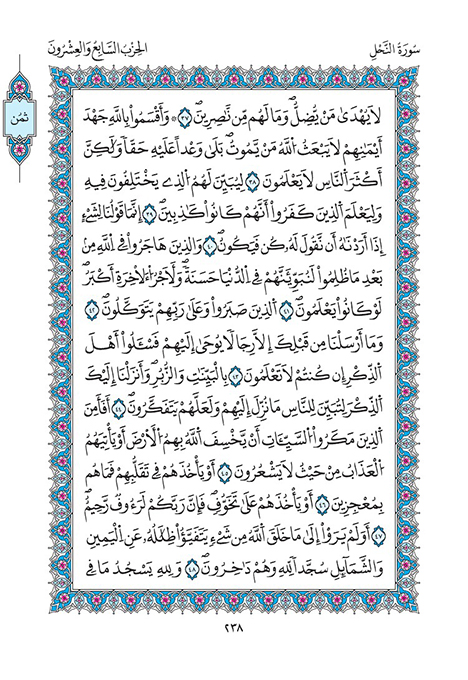 سُورَةُ النَّحْلِ
الحِزْبُ السَّابِعُ وَالعِشْرُونَ
ثمُن
لَا يُهْدَىٰ مَنْ يُّضِلُّۖ وَمَا لَهُم مِّن نَّٰصِرِينَۖ ٣٧ ۞ وَأَقْسَمُواْ بِاللَّهِ جَهْدَ
أَيْمَٰنِهِمْ لَا يَبْعَثُ اللَّهُ مَنْ يَّمُوتُۖ بَلَىٰ وَعْداً عَلَيْهِ حَقّاً وَلَٰكِنَّ
أَكْثَرَ اَ۬لنَّاسِ لَا يَعْلَمُونَۖ ٣٨ لِيُبَيِّنَ لَهُمُ الذِے يَخْتَلِفُونَ فِيهِ
وَلِيَعْلَمَ اَ۬لذِينَ كَفَرُواْ أَنَّهُمْ كَانُواْ كَٰذِبِينَۖ ٣٩ إِنَّمَا قَوْلُنَا لِشَےْءٍ
اِذَا أَرَدْنَٰهُ أَن نَّقُولَ لَهُۥ كُن فَيَكُونُۖ ٤٠ وَالذِينَ هَاجَرُواْ فِے اِ۬للَّهِ مِنۢ
بَعْدِ مَا ظُلِمُواْ لَنُبَوِّئَنَّهُمْ فِے اِ۬لدُّنْيَا حَسَنَةٗۖ وَلَأَجْرُ اُ۬لَاخِرَةِ أَكْبَرُۖ
لَوْ كَانُواْ يَعْلَمُونَۖ ٤١ اَ۬لذِينَ صَبَرُواْ وَعَلَىٰ رَبِّهِمْ يَتَوَكَّلُونَۖ ٤٢
وَمَا أَرْسَلْنَا مِن قَبْلِكَ إِلَّا رِجَالاً يُوحَىٰ إِلَيْهِمْ فَسْـَٔلُواْ أَهْلَ
اَ۬لذِّكْرِ إِن كُنتُمْ لَا تَعْلَمُونَۖ ٤٣ بِالْبَيِّنَٰتِ وَالزُّبُرِۖ وَأَنزَلْنَا إِلَيْكَ
اَ۬لذِّكْرَ لِتُبَيِّنَ لِلنَّاسِ مَا نُزِّلَ إِلَيْهِمْ وَلَعَلَّهُمْ يَتَفَكَّرُونَۖ ٤٤ أَفَأَمِنَ
اَ۬لذِينَ مَكَرُواْ اُ۬لسَّيِّـَٔاتِ أَنْ يَّخْسِفَ اَ۬للَّهُ بِهِمُ الْأَرْضَ أَوْ يَأْتِيَهُمُ
الْعَذَابُ مِنْ حَيْثُ لَا يَشْعُرُونَۖ ٤٥ أَوْ يَأْخُذَهُمْ فِے تَقَلُّبِهِمْ فَمَا هُم
بِمُعْجِزِينَۖ ٤٦ أَوْ يَأْخُذَهُمْ عَلَىٰ تَخَوُّفٖۖ فَإِنَّ رَبَّكُمْ لَرَءُوفٌ رَّحِيمٌۖ
٤٧ أَوَلَمْ يَرَوِاْ اِلَىٰ مَا خَلَقَ اَ۬للَّهُ مِن شَےْءٖ يَتَفَيَّؤُاْ ظِلَٰلُهُۥ عَنِ اِ۬لْيَمِينِ
وَالشَّمَآئِلِ سُجَّداً لِّلهِ وَهُمْ دَٰخِرُونَۖ ٤٨ وَلِلهِ يَسْجُدُ مَا فِے
٢٣٨